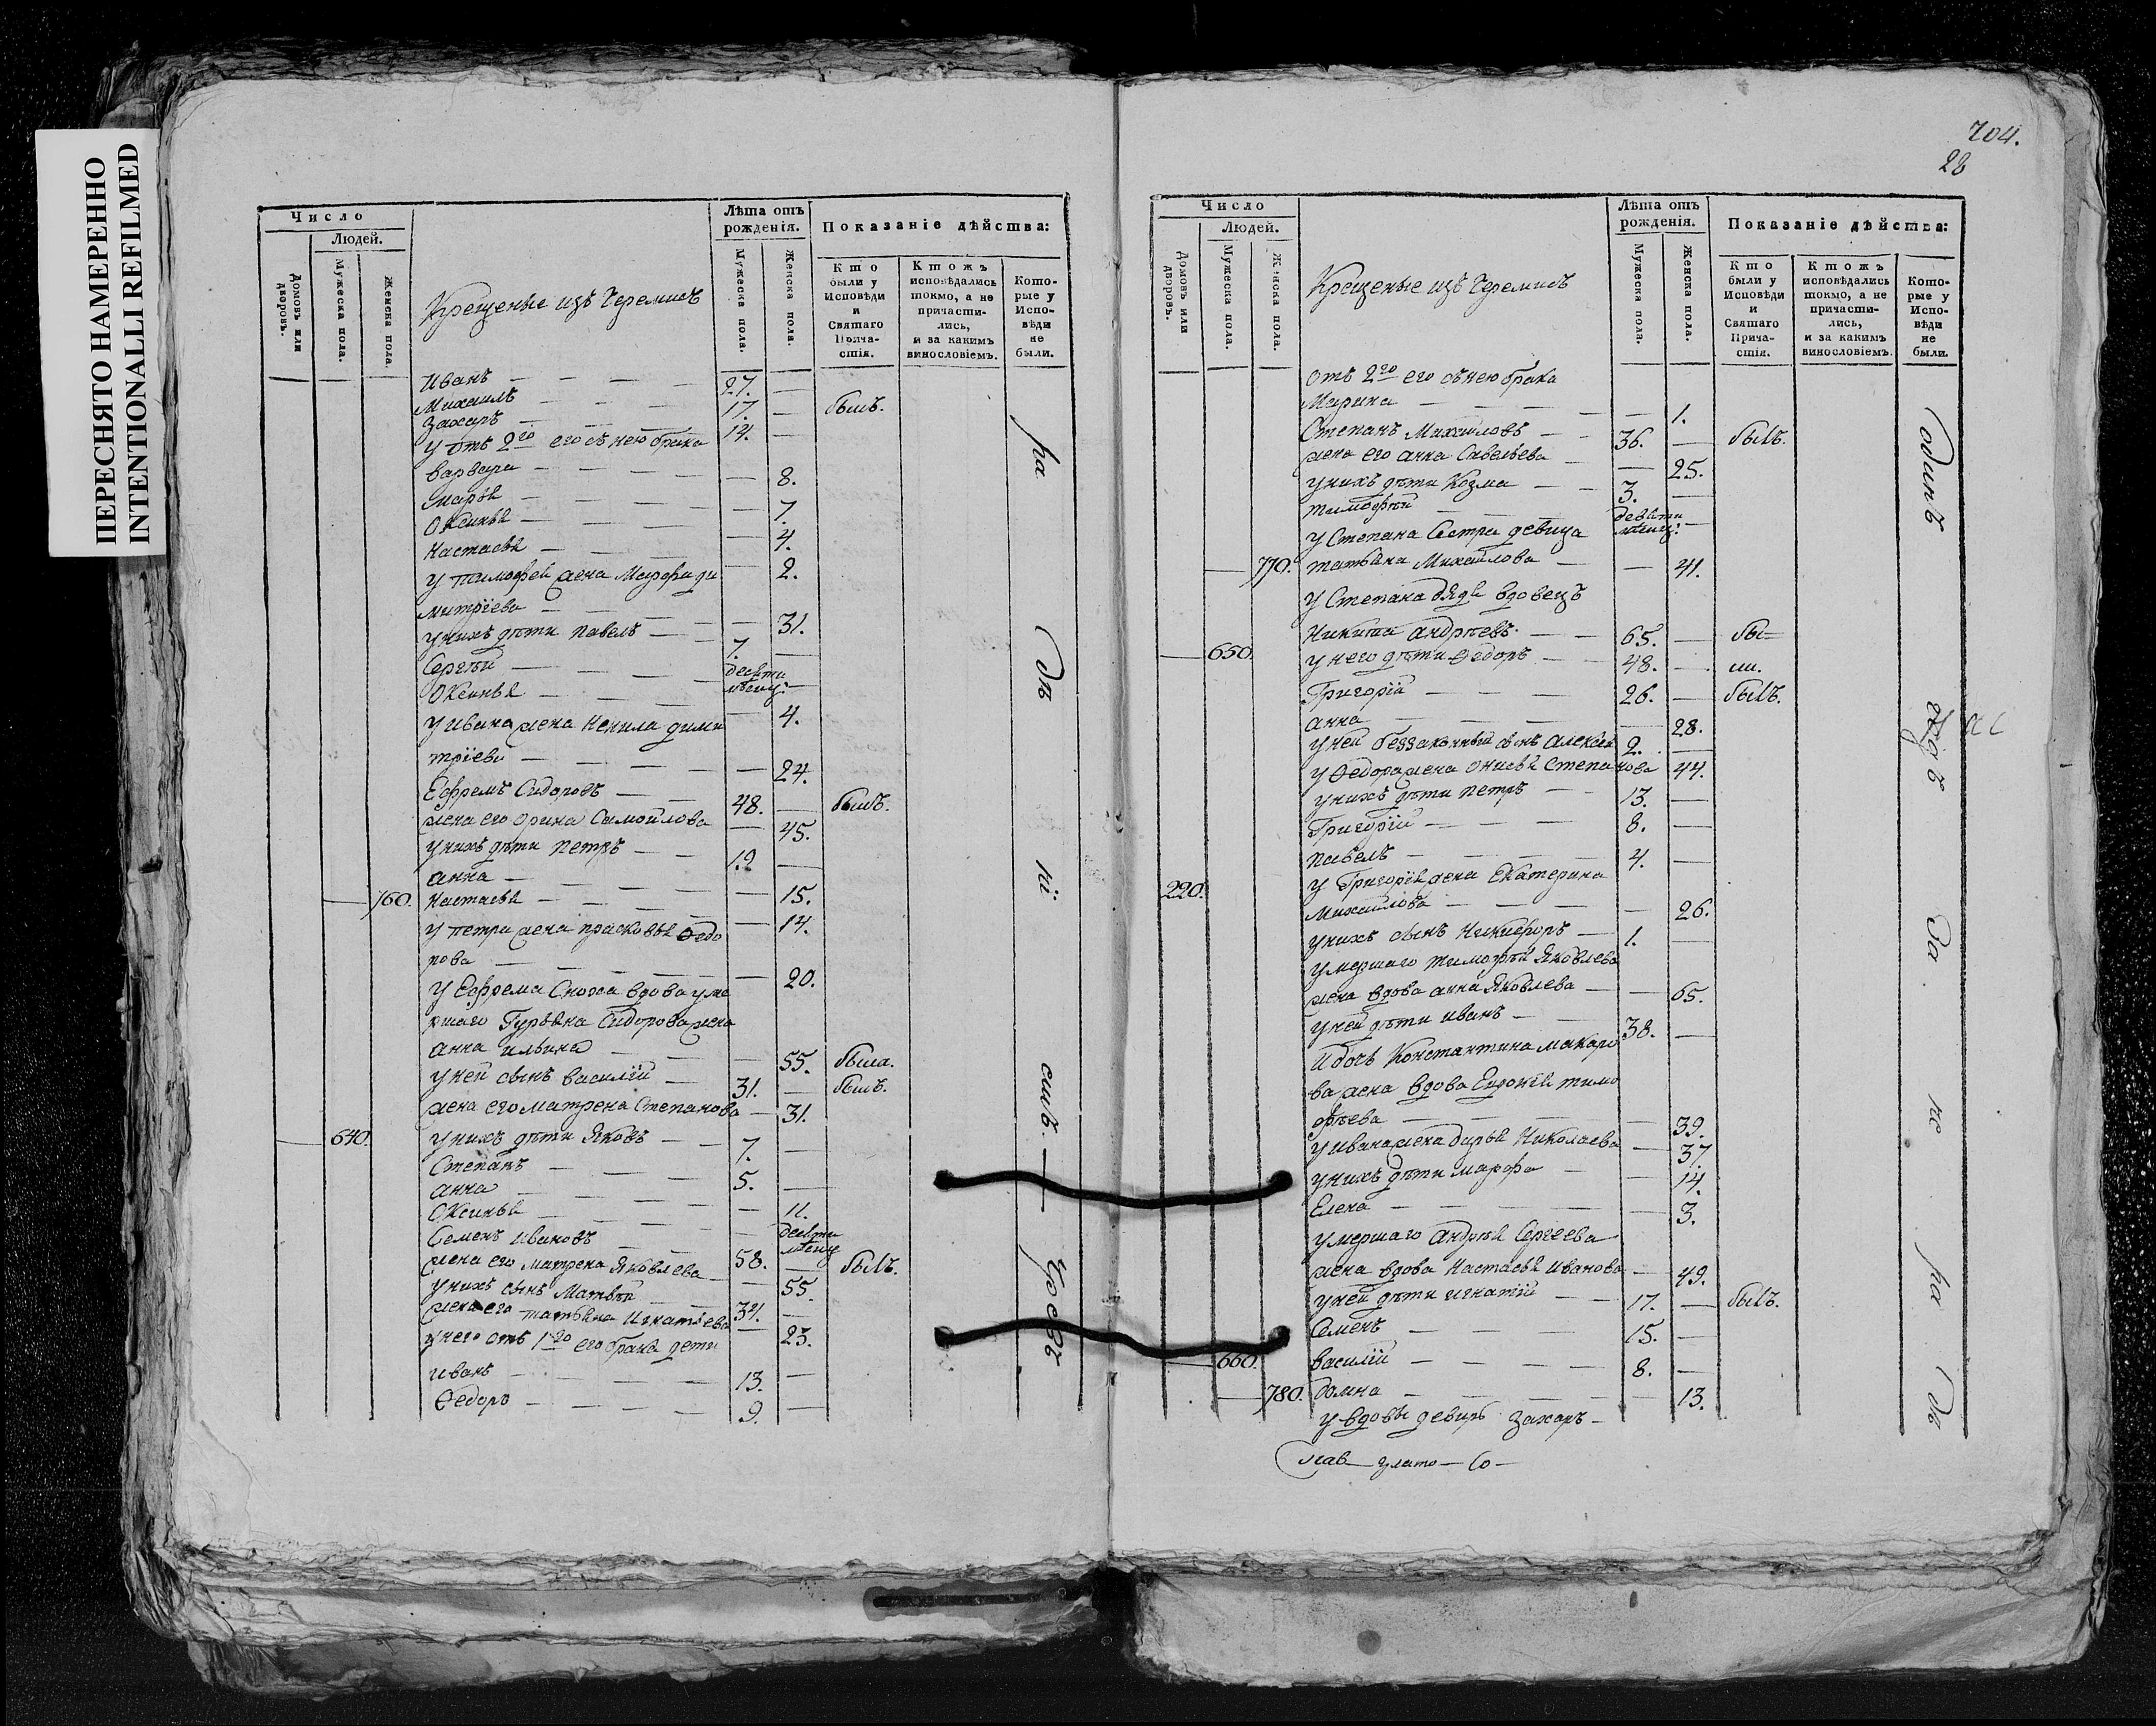 ПЕРЕСНЯТО НАМЕРЕННО
INTENTIONALLI REFILMED
Число
Людей.
Домовъ или дворовъ.
Мужеска пола.
Женска пола
Крещеные изъ Черемисъ
Лѣта отъ рожденія.
Мужеска пола.
Женска пола.
Показаніе дѣйства:
Кто были у Исповѣди и Святаго Прича-стія.
Ктожъ исповѣдались токмо, а не причасти-лись, и за какимъ винословіемъ.
Кото-рые у Испо-вѣди не были.
Иванъ — 27. —
Михаилъ — 17. — былъ.
Захаръ — 14. —
у отъ 2го его съ нею брака
варвара — 8.
марья — 7.
Оксинья — 4.
Настасья — 2.
у тимофея жена Марфа ди
митріева — 31.
у нихъ дѣти павелъ — 7. —
Сергѣй — десяти мѣсяц: —
Оксинья — 4.
у ивана жена Ненила дими
тріева — 24.
Ефремъ Сидоровъ — 48. — былъ.
жена его орина Самойлова — 45.
у нихъ дѣти петръ — 19 —
анна — 15.
760. Настасья — 14.
у петра жена прасковья Ѳедо
рова — 20.
у Ефрема Сноха вдова уме
ршаго Гурьяна Сидорова жена
анна ильина — 55. была.
у ней сынъ василій — 31. — былъ.
жена его матрена Степанова — 31.
640. у нихъ дѣти Яковъ — 7. —
Степанъ — 5. —
анна — 11.
Оксинья — десяти мѣсяц
Семенъ ивановъ — 58. — былъ.
жена его матрена Яковлева — 55.
у нихъ сынъ Матвѣй — 34. —
жена его татьяна Игнатьева — 23.
у него отъ 1го его брака дети
иванъ — 13. —
Ѳедоръ — 9. —
ра
дѣ
сихъ —
704.
28
Число
Людей.
Домовъ или дворовъ.
Мужеска пола.
Женска пола.
Крещеные изъ Черемисъ
Лѣта отъ рожденія.
Мужеска пола.
Женска пола.
Показаніе дѣйства:
Кто были у Исповѣди и Святаго Прича-стія.
Ктожъ исповѣдались токмо, а не причасти-лись, и за какимъ винословіемъ.
Кото-рые у Испо-вѣди не были.
отъ 2го его съ нею брака
Марина — 1.
Степанъ Михайловъ — 36. — былъ.
жена его анна Савельева — 25.
у нихъ дѣти Козма — 3. —
тимофѣй — девяти мѣсяц: —
у Степана Сестра девица
770. татьяна Михайлова — 41.
у Степана дядя вдовецъ
Никита андрѣевъ — 65. — бы-
650. у него дѣти Ѳедоръ — 48. — ли.
Григорій — 26. — былъ.
анна — 28.
у ней беззаконный сынъ алексѣй 2. —
у Ѳедора жена онисья Степанова 44.
у нихъ дѣти петръ — 13. —
Григорій — 8. —
павелъ — 4. —
220. у Григорія жена Екатерина
михайлова — 26.
у нихъ сынъ Никифоръ — 1. —
умершаго тимофѣя Яковлева
жена вдова анна Яковлева — 65.
у ней дѣти иванъ — 38. —
и дочь Константина макаро
ва жена вдова Евдокѣя тимо
фѣева — 39.
у ивана жена дарья Николаева — 37.
у нихъ дѣти марфа — 14.
Елена — 3.
умершаго андрѣя Сергеева
жена вдова Настасья Иванова — 49.
у ней дѣти игнатій — 17. — былъ.
Семенъ — 15. —
660. василій — 8. —
780. домна — 13.
у вдовы деверь Захаръ —
одинъ
за
не
ра
дѣ